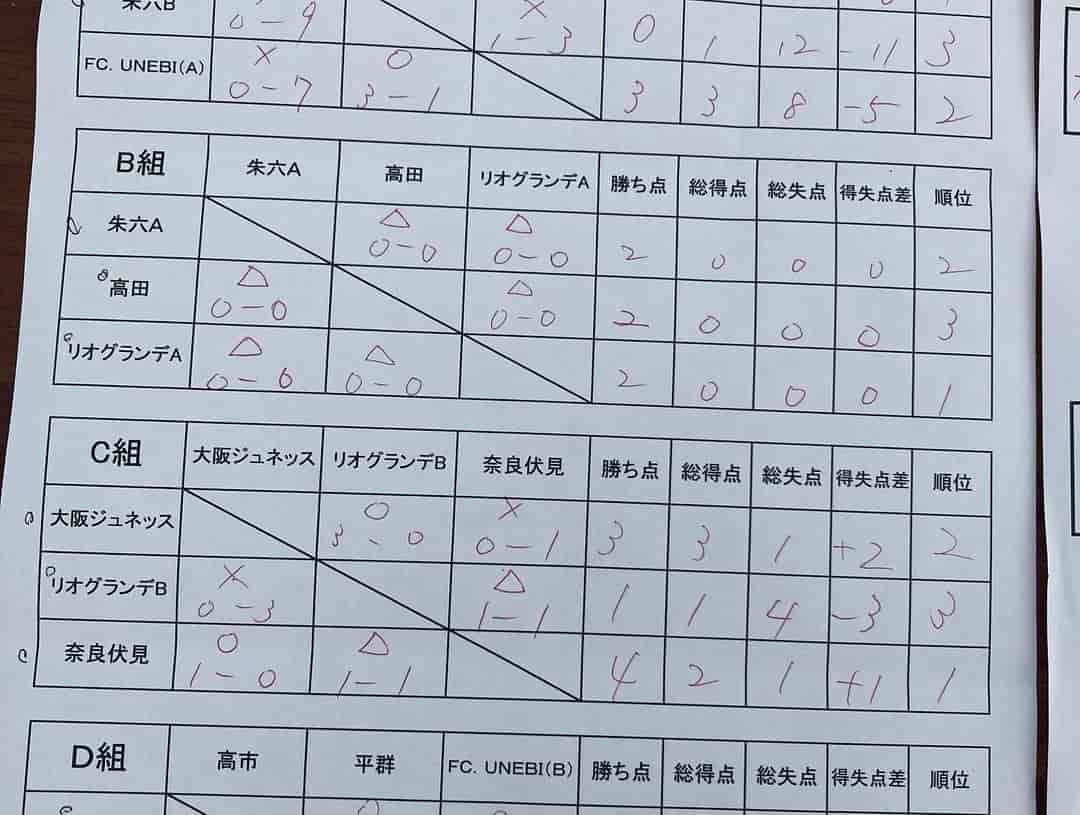 朱六B 0-9 × 1-3 0 1 12 -11 3
FC. UNEBI(A) × 0-7 ○ 3-1 3 3 8 -5 2
B組 朱六A 高田 リオグランデA 勝ち点 総得点 総失点 得失点差 順位
朱六A △ 0-0 △ 0-0 2 0 0 0 2
高田 △ 0-0 △ 0-0 2 0 0 0 3
リオグランデA △ 0-0 △ 0-0 2 0 0 0 1
C組 大阪ジュネッス リオグランデB 奈良伏見 勝ち点 総得点 総失点 得失点差 順位
大阪ジュネッス ○ 3-0 × 0-1 3 3 1 +2 2
リオグランデB × 0-3 △ 1-1 1 1 4 -3 3
奈良伏見 ○ 1-0 △ 1-1 4 2 1 +1 1
D組 高市 平群 FC. UNEBI(B) 勝ち点 総得点 総失点 得失点差 順位